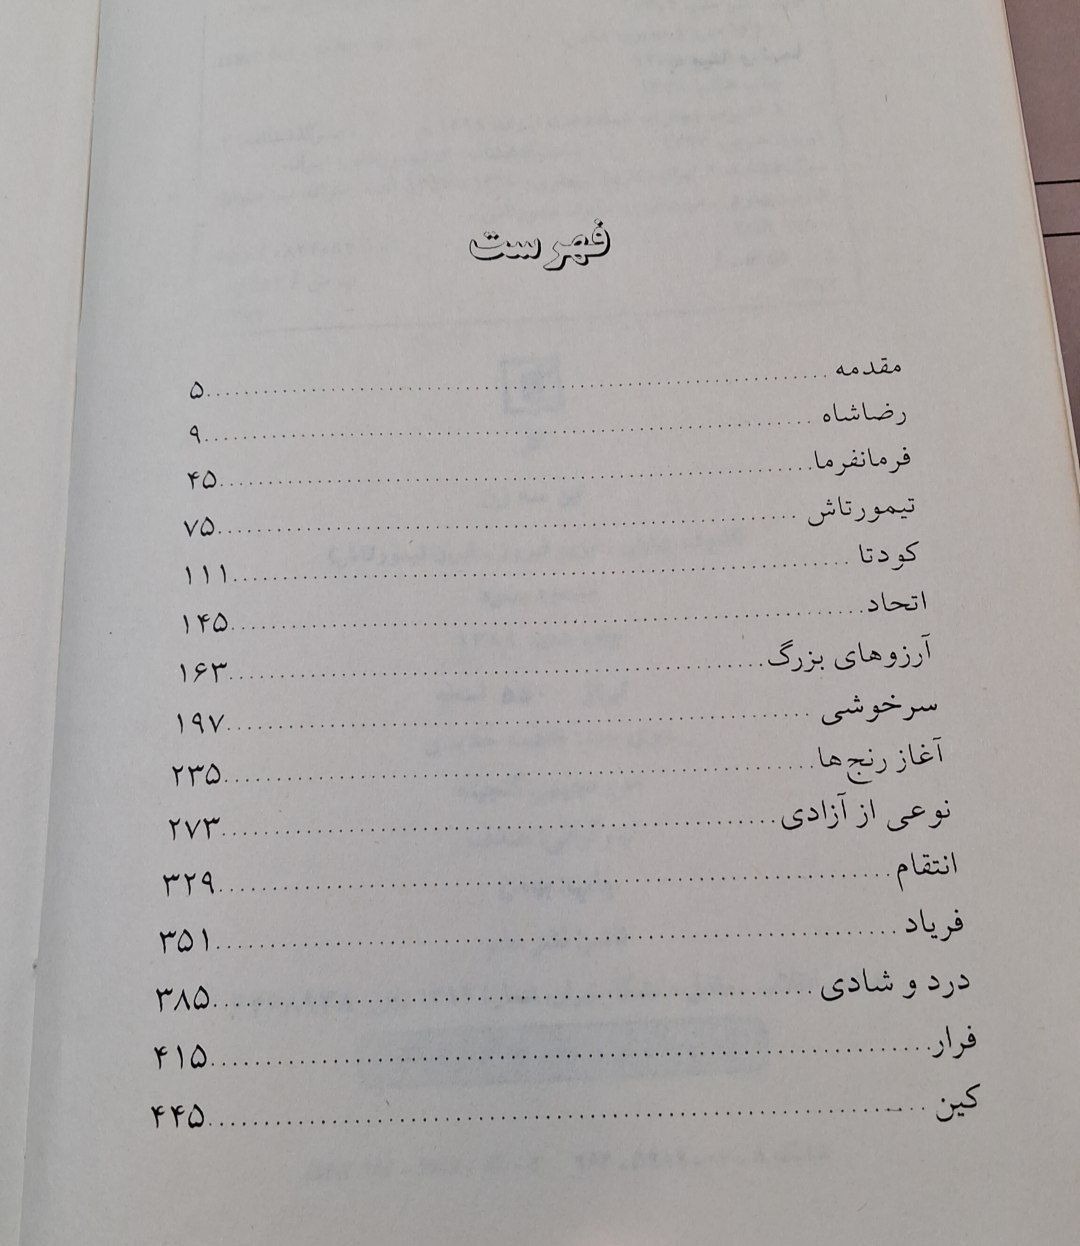 فهرست
مقدمه ........ ۵
رضاشاه ........ ۹
فرمانفرما ........ ۴۵
تیمورتاش ........ ۷۵
کودتا ........ ۱۱۱
اتحاد ........ ۱۴۵
آرزوهای بزرگ ........ ۱۶۳
سرخوشی ........ ۱۹۷
آغاز رنج‌ها ........ ۲۳۵
نوعی از آزادی ........ ۲۷۳
انتقام ........ ۳۲۹
فریاد ........ ۳۵۱
درد و شادی ........ ۳۸۵
فرار ........ ۴۱۵
کین ........ ۴۴۵